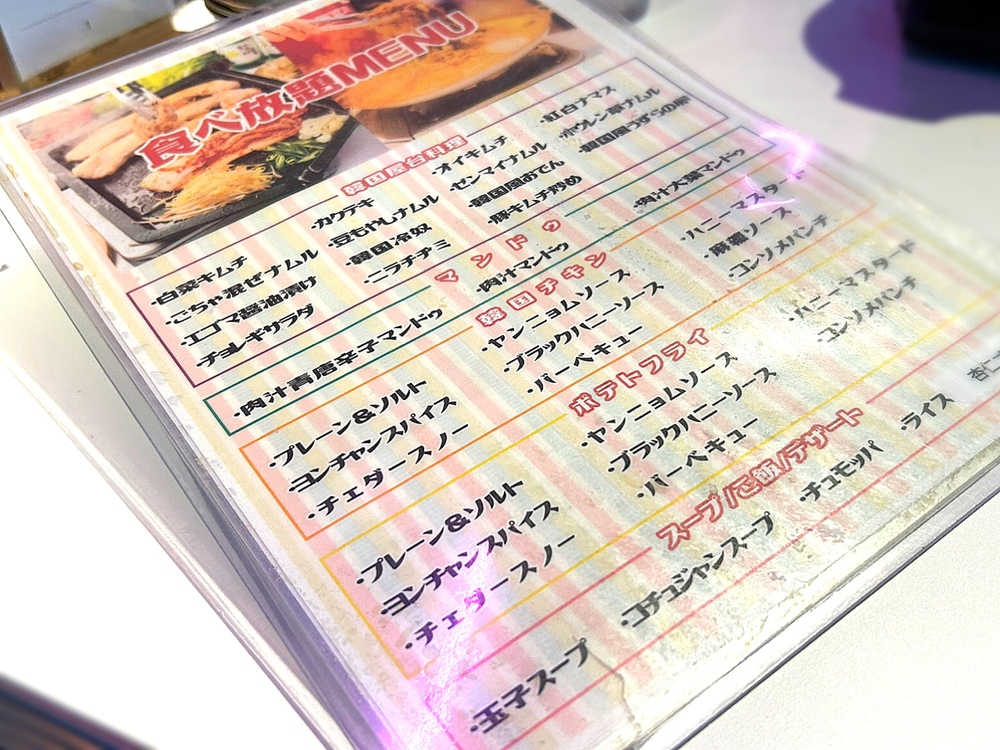 食べ放題MENU
韓国屋台料理
・白菜キムチ ・カクテキ ・オイキムチ ・紅白ナマス
・ごちゃ混ぜナムル ・豆もやしナムル ・ゼンマイナムル ・ホウレン草ナムル
・エゴマ醤油漬け ・韓国冷奴 ・韓国風おでん ・韓国風うずらの卵
・チョレギサラダ ・ニラチヂミ ・豚キムチ炒め
マンドゥ
・肉汁青唐辛子マンドゥ ・肉汁マンドゥ ・肉汁大葉マンドゥ
韓国チキン
・プレーン&ソルト ・ヤンニョムソース ・ハニーマスタード
・ヨンチャンスパイス ・ブラックハニーソース ・麻婆ソース
・チェダースノー ・バーベキュー ・コンソメパンチ
ポテトフライ
・プレーン&ソルト ・ヤンニョムソース ・ハニーマスタード
・ヨンチャンスパイス ・ブラックハニーソース ・コンソメパンチ
・チェダースノー ・バーベキュー
スープ/ご飯/デザート
・玉子スープ ・コチュジャンスープ ・チュモッパ ・ライス